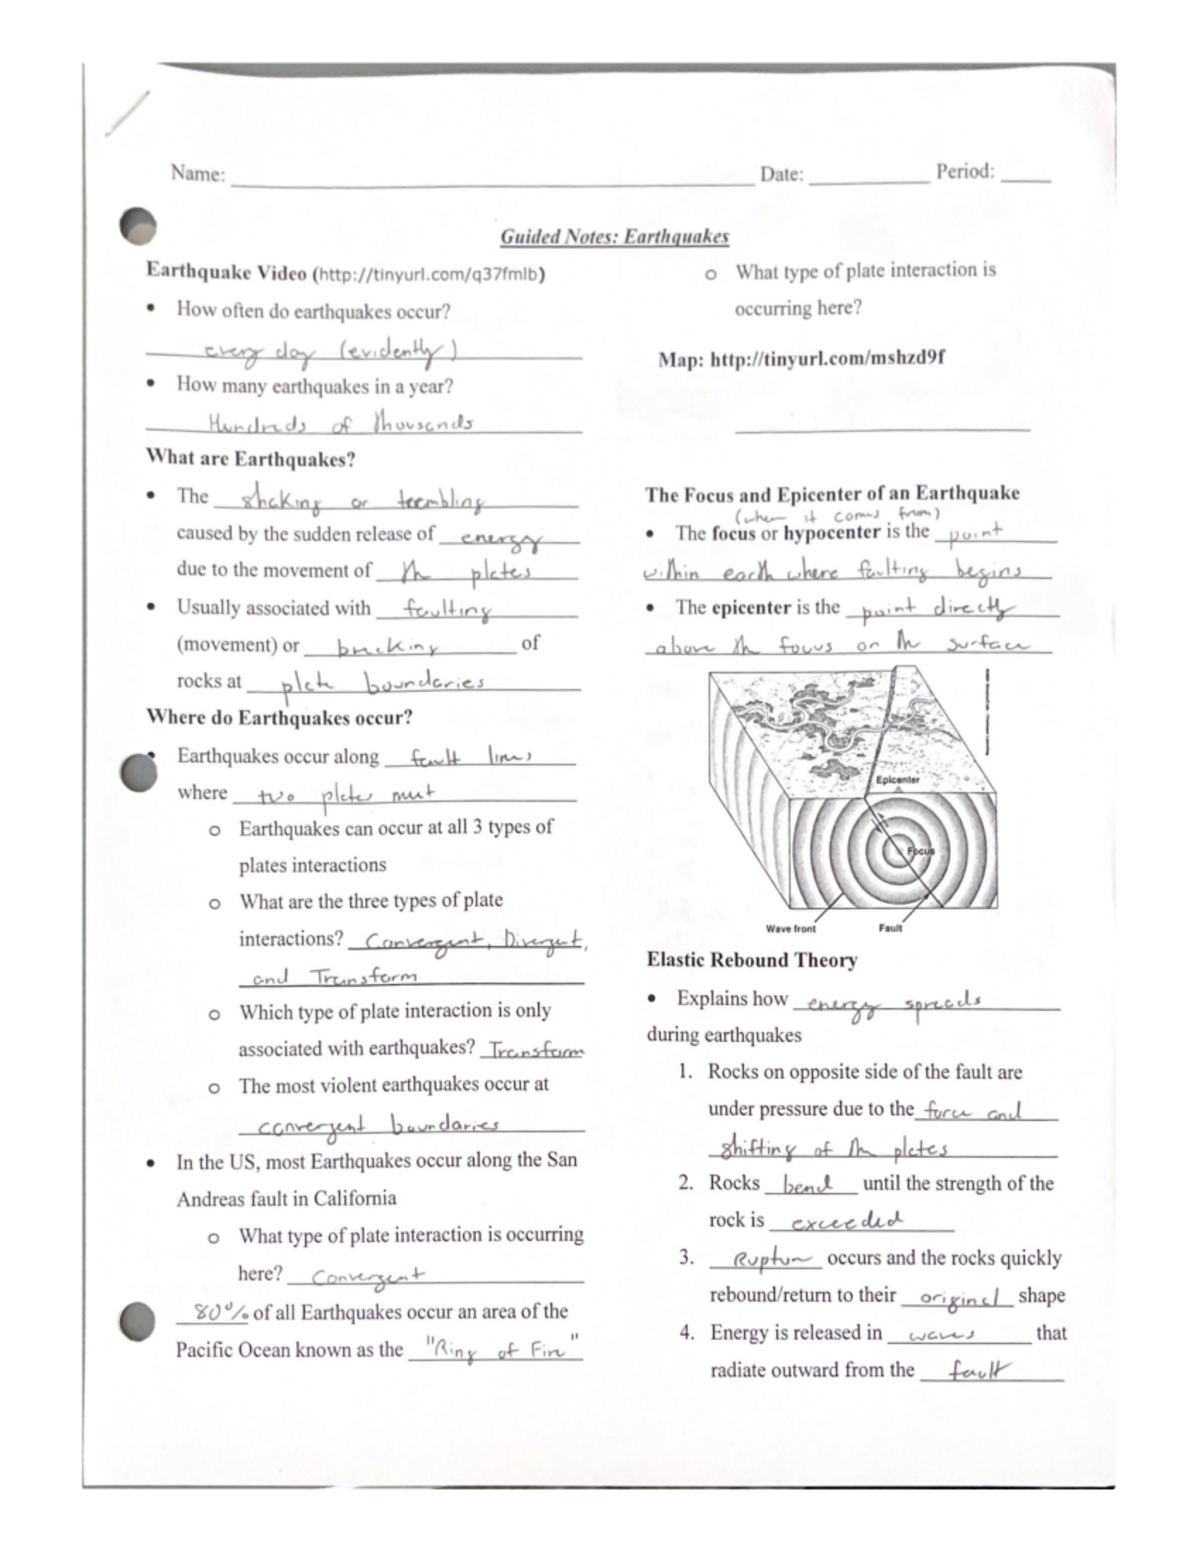 Name: ____ Date: ____ Period: ____
Guided Notes: Earthquakes
Earthquake Video (http://tinyurl.com/q37fmlb)
• How often do earthquakes occur?
every day (evidently)
• How many earthquakes in a year?
Hundreds of thousands
What are Earthquakes?
• The shaking or trembling
caused by the sudden release of energy
due to the movement of the plates
• Usually associated with faulting
(movement) or breaking of
rocks at plate boundaries
Where do Earthquakes occur?
• Earthquakes occur along fault lines
where two plates meet
o Earthquakes can occur at all 3 types of
plates interactions
o What are the three types of plate
interactions? Convergent, Divergent,
and Transform
o Which type of plate interaction is only
associated with earthquakes? Transform
o The most violent earthquakes occur at
convergent boundaries
• In the US, most Earthquakes occur along the San
Andreas fault in California
o What type of plate interaction is occurring
here? Convergent
80% of all Earthquakes occur an area of the
Pacific Ocean known as the "Ring of Fire"
o What type of plate interaction is
occurring here?
Map: http://tinyurl.com/mshzd9f
The Focus and Epicenter of an Earthquake
(where it comes from)
• The focus or hypocenter is the point
within earth where faulting begins
• The epicenter is the point directly
above the focus on the surface
Epicenter
Focus
Wave front Fault
Elastic Rebound Theory
• Explains how energy spreads
during earthquakes
1. Rocks on opposite side of the fault are
under pressure due to the force and
shifting of the plates
2. Rocks bend until the strength of the
rock is exceeded
3. Rupture occurs and the rocks quickly
rebound/return to their original shape
4. Energy is released in waves that
radiate outward from the fault